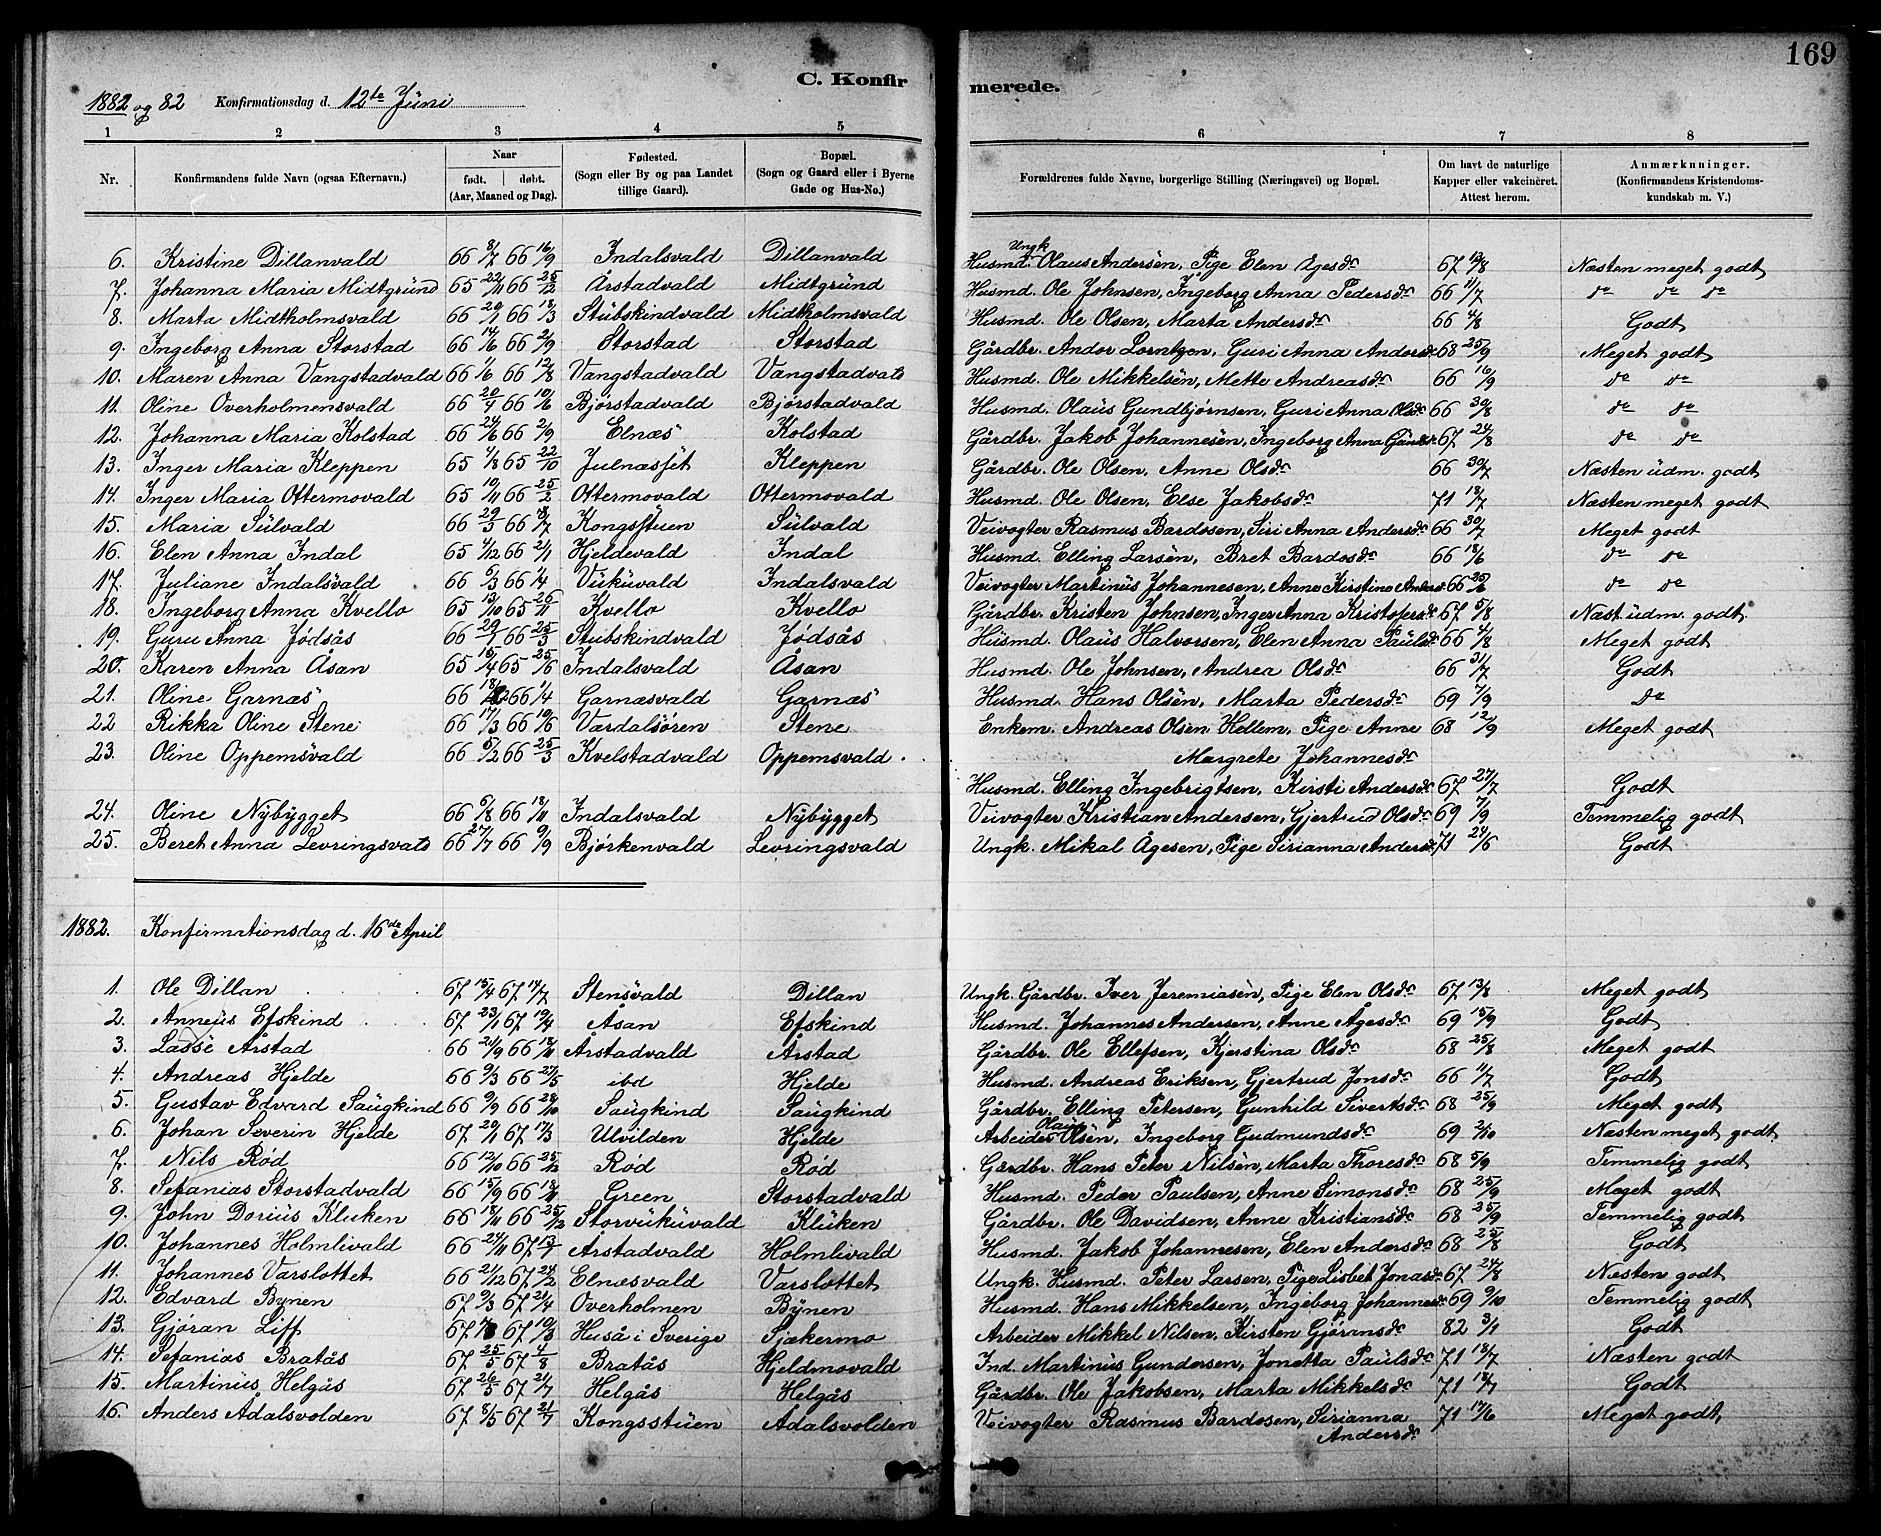 169
C. Konfirmerede.
1882 og 82 Konfirmationsdag d. 12te Juni
1 2 3 4 5 6 7 8
Nr. Konfirmandens fulde Navn (ogsaa Efternavn.) Naar født. døbt. (Aar, Maaned og Dag). Fødested. (Sogn eller By og paa Landet tillige Gaard). Bopæl. (Sogn og Gaard eller i Byerne Gade og Hus-No.) Forældrenes fulde Navne, borgerlige Stilling (Næringsvei) og Bopæl. Om havt de naturlige Kapper eller vakcineret. Attest herom. Anmærkninger. (Konfirmandens Kristendomskundskab m. V.)
6. Kristine Dillanvald 66 8/7 66 16/9 Indalsvald Dillanvald Ungk Husmd. Olaus Andersen, Pige Elen Agesdr 67 13/8 Næsten meget godt
7. Johanna Maria Midtgrund 65 22/11 66 25/2 Årstadvald Midtgrund Husmd. Ole Johnsen, Ingeborg Anna Pedersdr 66 11/7 do do do
8. Marta Midtholmsvald 66 20/1 66 18/3 Stubskindvald Midtholmsvald Husmd. Ole Olsen, Marta Andersdr 66 4/8 Godt
9. Ingeborg Anna Storstad 66 14/6 66 2/9 Storstad Storstad Gårdbr. Andor Lorntzen, Guri Anna Andorsdr 68 25/9 Meget godt
10. Maren Anna Vangstadvald 66 1/6 66 12/8 Vangstadvald Vangstadvald Husmd. Ole Mikkelsen, Mette Andreasdr 66 10/9 do do
11. Oline Overholmensvald 66 20/4 66 10/6 Bjørstadvald Bjørstadvald Husmd. Olaus Gundbjørnsen, Guri Anna Olsdr 66 30/8 do do
12. Johanna Maria Kolstad 66 24/6 66 2/9 Elnæs Kolstad Gårdbr. Jakob Johannesen, Ingeborg Anna 67 24/8 do do
13. Inger Maria Kleppen 65 4/8 65 22/10 Julnæsset Kleppen Gårdbr. Ole Olsen, Anne Olsdr 66 30/7 Næsten udm. godt
14. Inger Maria Ottermovald 65 10/11 66 25/2 Ottermovald Ottermovald Husmd. Ole Olsen, Else Jakobsdr 71 18/7 Næsten meget godt
15. Maria Sulvald 66 29/5 66 8/7 Kongsstuen Sulvald Veivogter Rasmus Bardosen, Siri Anna Andersdr 66 30/7 Meget godt
16. Elen Anna Indal 65 4/12 66 2/1 Hjeldevald Indal Husmd. Elling Larsen, Bret Bardosdr 66 18/6 do do
17. Juliane Indalsvald 66 6/3 66 1/4 Vukuvald Indalsvald Veivogter Martinus Johannesen, Anne Kirstine Andersd 66 do do
18. Ingeborg Anna Kvello 65 13/10 65 26/11 Kvello Kvello Gårdbr. Kristen Johnsen, Inger Anna Kristofersdr 67 5/8 Næst. udm. godt
19. Guru Anna Jødsås 66 29/1 66 25/3 Stubskindvald Jødsås Husmd. Olaus Halvorsen, Elen Anna Paulsdr 66 Meget godt
20. Karen Anna Åsan 65 15/4 65 25/6 Indalsvald Åsan Husmd. Ole Johnsen, Andrea Olsdr 66 31/7 Godt
21. Oline Garnæs 66 18/2 66 1/4 Garnæsvald Garnæs Husmd. Hans Olsen, Marta Pedersdr 69 7/9 do
22 Rikka Oline Stene 66 17/3 66 10/6 Værdalsøren Stene Enkem. Andreas Olsen Hellem, Pige Anne 68 12/9 Meget godt
23. Oline Oppemsvald 66 5/2 66 25/3 Kvelstadvald Oppemsvald. Margrete Johannesdr
Husmd. Elling Ingebrigtsen, Kirsti Andersdr 67 27/7 Godt
24. Oline Nybygget 66 6/8 66 18/11 Indalsvald Nybygget Veivogter Kristian Andersen, Gjertrud Olsdr 69 7/9 Temmelig godt
25. Beret Anna Levringsvald 66 27/7 66 9/9 Bjørkenvald Levringsvald Ungk. Mikal Ågesen, Pige Sirianna Andersdr 71 29/6 Godt
1882. Konfirmationsdag d. 16de April
1. Ole Dillan 67 15/4 67 14/7 Stensvald Dillan Ungk. Gårdbr. Iver Jeremiasen, Pige Elen Olsdr 67 13/8 Meget godt
2. Anneus Efskind 67 23/1 67 19/4 Åsan Efskind Husmd. Johannes Andersen, Anne Agesdr 69 15/9 Godt
3. Lasse Årstad 66 24/9 66 18/11 Årstadvald Årstad Gårdbr. Ole Ellefsen, Kjerstina Olsdr 68 25/8 Meget godt
4. Andreas Hjelde 66 9/3 66 27/5 ibd Hjelde Husmd. Andreas Eriksen, Gjertrud Jonsdr 66 11/7 Godt
5. Gustav Edvard Saugkind 66 9/9 66 28/10 Saugkind Saugkind Gårdbr. Elling Petersen, Gunhild Sivertsdr 68 25/9 Meget godt
6. Johan Severin Hjelde 67 20/1 67 17/3 Ulvilden Hjelde Arbeider Olaus Olsen, Ingeborg Gudmundsdr 69 2/10 Næsten meget godt
7. Nils Rød 66 12/10 66 25/12 Rød Rød Gårdbr. Hans Peter Nilsen, Marta Thoresdr 68 5/9 Temmelig godt
8. Sefanias Storstadvald 66 15/9 66 18/11 Green Storstadvald Husmd. Peder Paulsen, Anne Simonsdr 68 25/9 Meget godt
9. John Dorius Kluken 66 18/11 66 25/12 Storvukuvald Kluken Gårdbr. Ole Davidsen, Anne Kristiansdr 68 25/9 Temmelig godt
10. Johannes Holmlivald 66 24/11 67 13/1 Årstadvald Holmlivald Husmd. Jakob Johannesen, Elen Andersdr 68 25/8 Godt
11. Johannes Varslottet 66 21/12 67 24/2 Elnæsvald Varslottet Ungk. Husmd. Peter Larsen, Pige Lisbet Jonasdr 67 24/8 Næsten godt
12. Edvard Bynen 67 9/3 67 21/4 Overholmen Bynen Husmd. Hans Mikkelsen, Ingeborg Johannesdr 69 9/10 Temmelig godt
13. Gjøran Liff 67 67 10/3 Huså i Sverige Sjækermo Arbeider Mikkel Nilsen, Kirsten Gjøransdr 82 3/1 Godt
14. Sefanias Bratås 67 25/5 67 4/8 Bratås Hjeldmovald Ind. Martinus Gundersen, Jonetta Paulsdr 71 18/7 Næsten godt
15. Martinus Helgås 67 26/5 67 21/7 Helgås Helgås Gårdbr. Ole Jakobsen, Marta Mikkelsdr 71 18/7 Godt
16. Anders Ådalsvolden 67 8/5 67 21/7 Kongsstuen Ådalsvolden Veivogter Rasmus Bardosen, Sirianna 71 17/6 Meget godt,
Andersdr